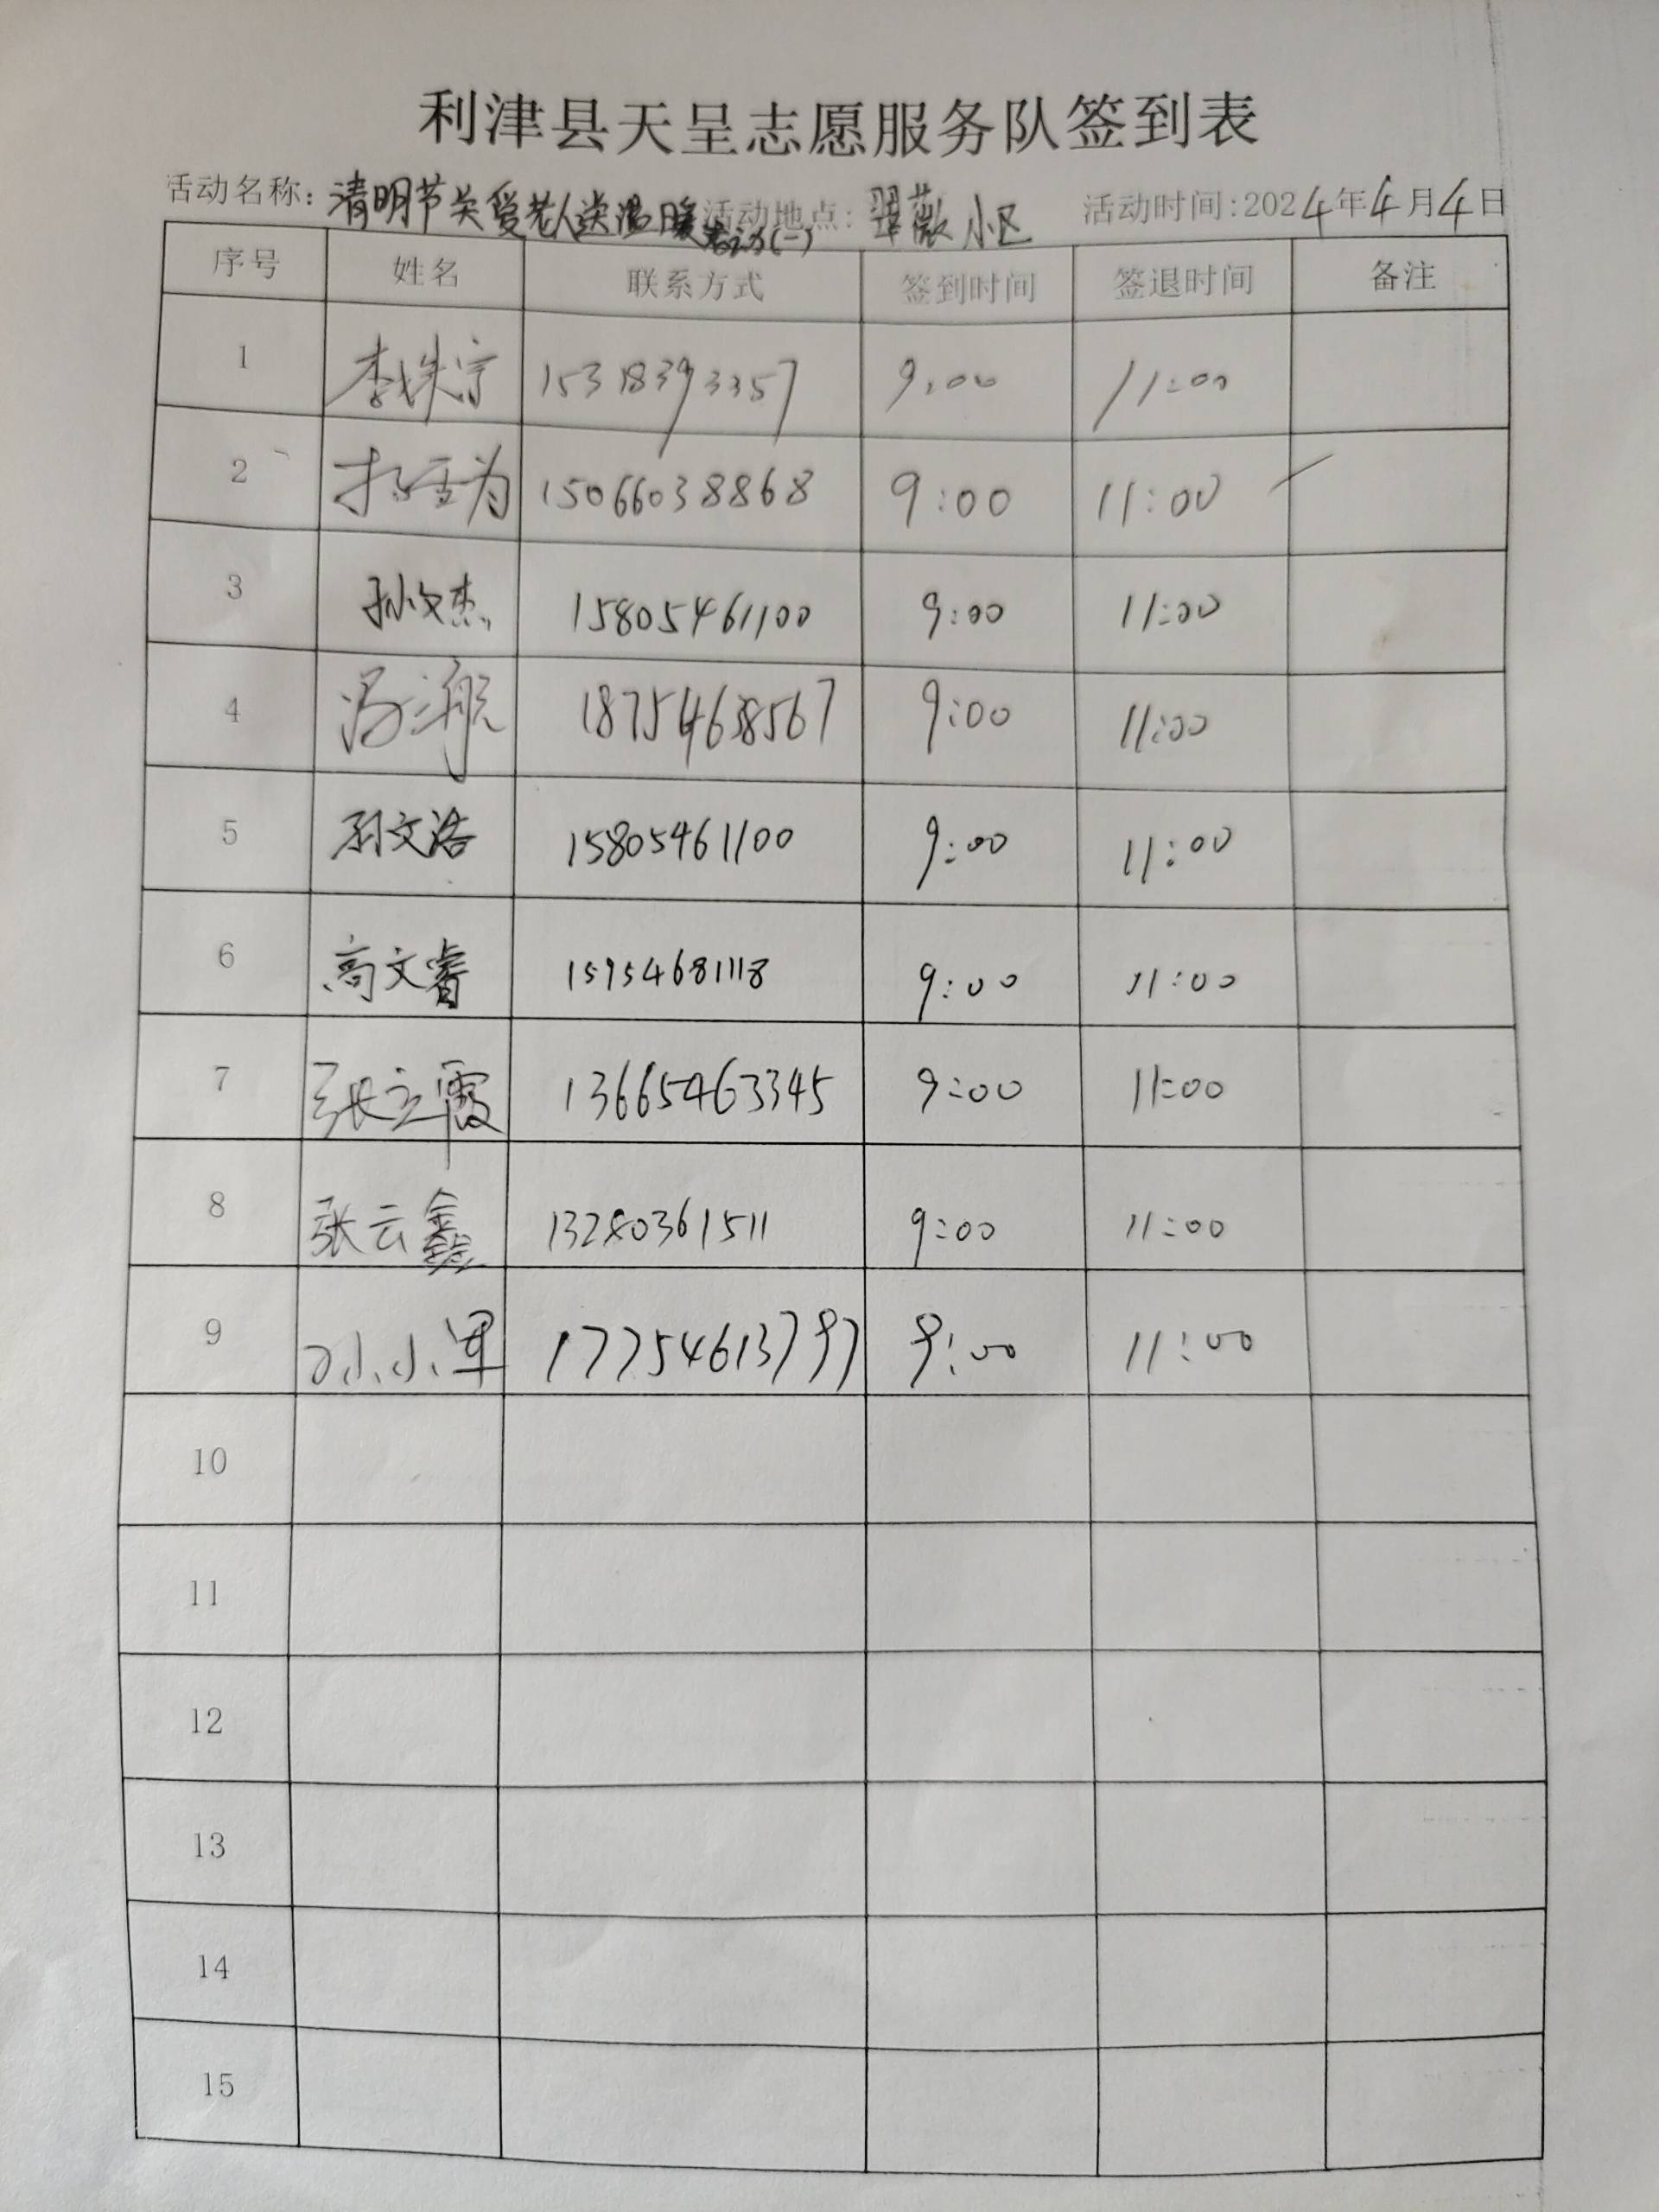 利津县天呈志愿服务队签到表
活动名称：清明节关爱老人送温暖活动(一) 活动地点：翠薇小区 活动时间:2024年4月4日
序号 姓名 联系方式 签到时间 签退时间 备注
1 李姝宁 15318393357 9:00 11:00
2 15066038868 9:00 11:00
3 孙文杰 15805461100 9:00 11:00
4 冯三航 18754638567 9:00 11:00
5 孙文浩 15805461100 9:00 11:00
6 高文睿 15954681118 9:00 11:00
7 张立霞 13665463345 9:00 11:00
8 张云鑫 13280361511 9:00 11:00
9 孙小军 17754613797 9:00 11:00
10
11
12
13
14
15